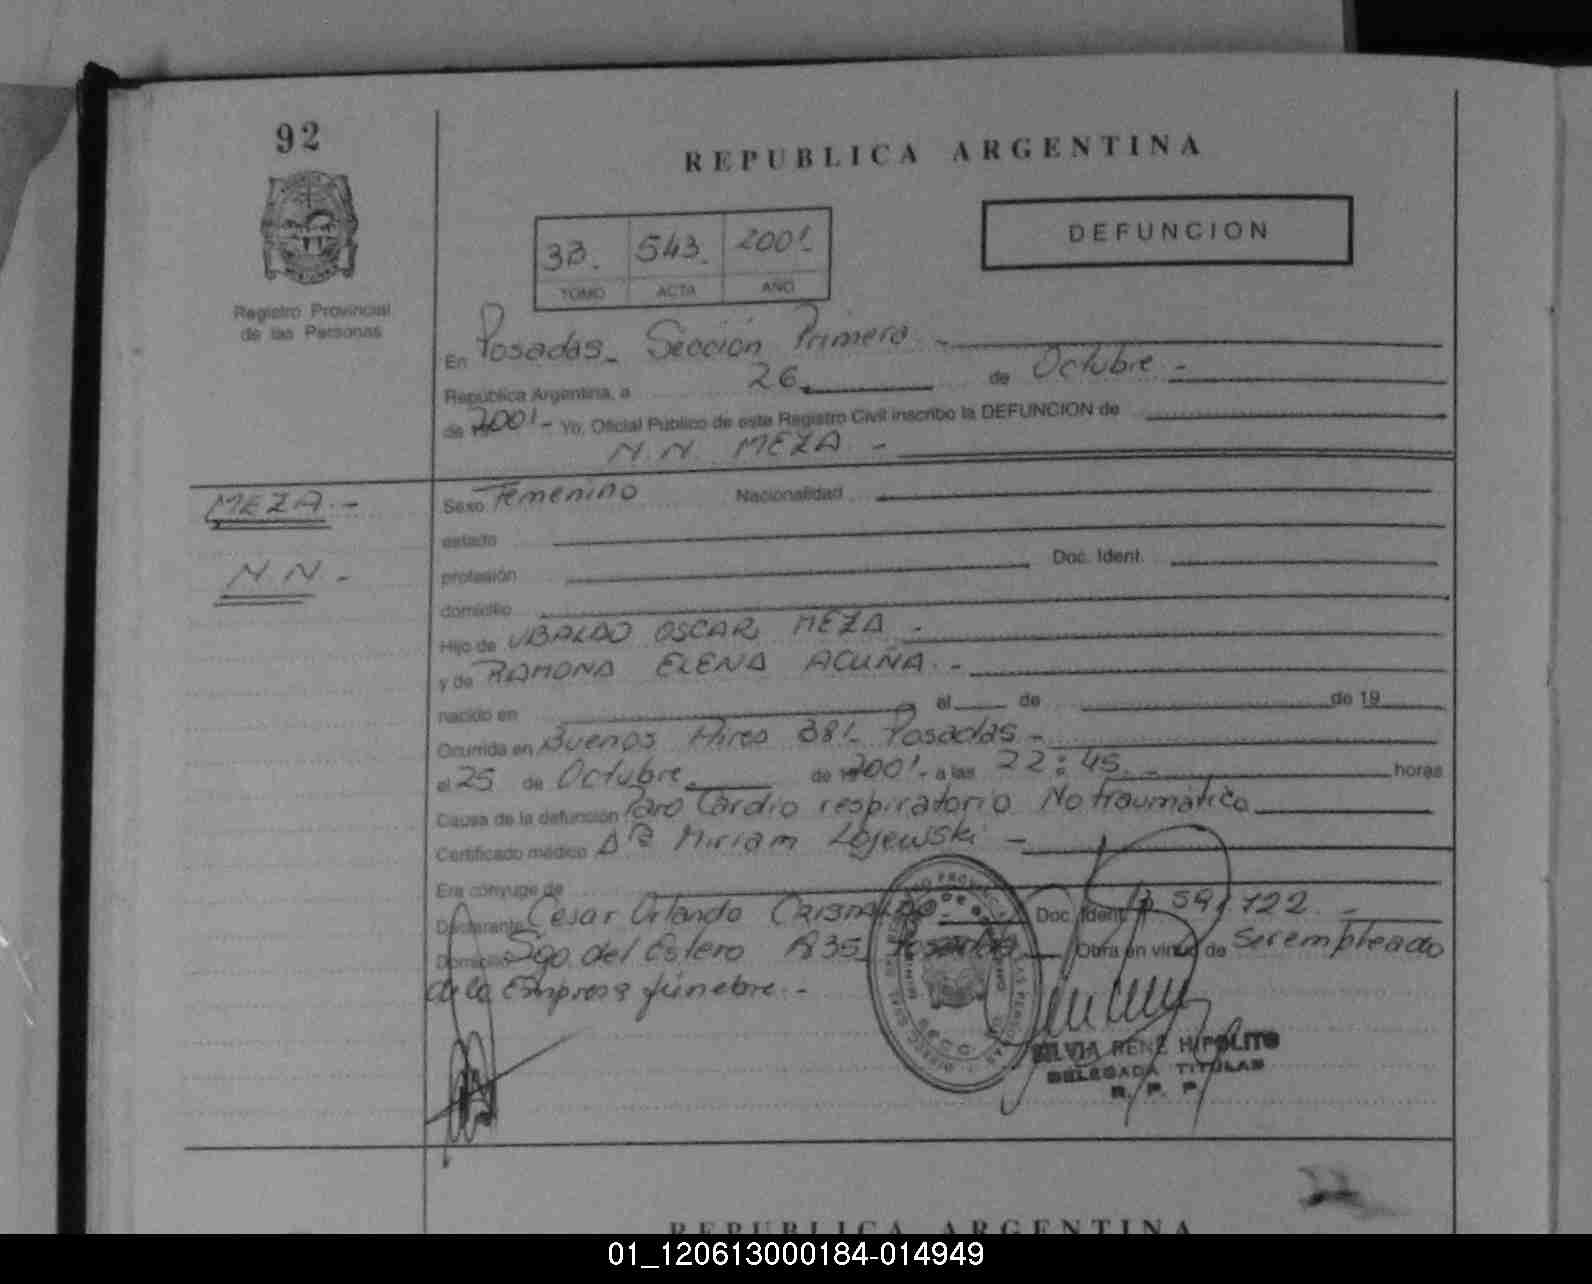 92
REPUBLICA ARGENTINA
DEFUNCION
33. 543. 2001.
TOMO ACTA AÑO
Registro Provincial
de las Personas
En Posadas - Sección Primera -
República Argentina, a 26 de Octubre -
de 2001 - Yo, Oficial Público de este Registro Civil inscribo la DEFUNCION de
N.N. MEZA -
MEZA. -
N N. -
Sexo Femenino Nacionalidad
estado
profesión Doc. Ident.
domicilio
Hijo de UBALDO OSCAR MEZA -
y de RAMONA ELENA ACUÑA. -
nacido en el de de 19
Ocurrida en Buenos Aires 381- Posadas -
el 25 de Octubre. de 2001 - a las 22:45. - horas
Causa de la defunción Paro Cardio respiratorio No traumático
Certificado médico Dra Miriam Lojewski -
Era cónyuge de
Declarante Cesar Orlando Doc. Ident.
Domicilio Sgo. del Estero Posadas Obra en virtud de Ser empleado
de la Empresa fúnebre. -
SILVIA RENE HIPOLITO
DELEGADA TITULAR
R. P. P.
REPUBLICA ARGENTINA
01_120613000184-014949